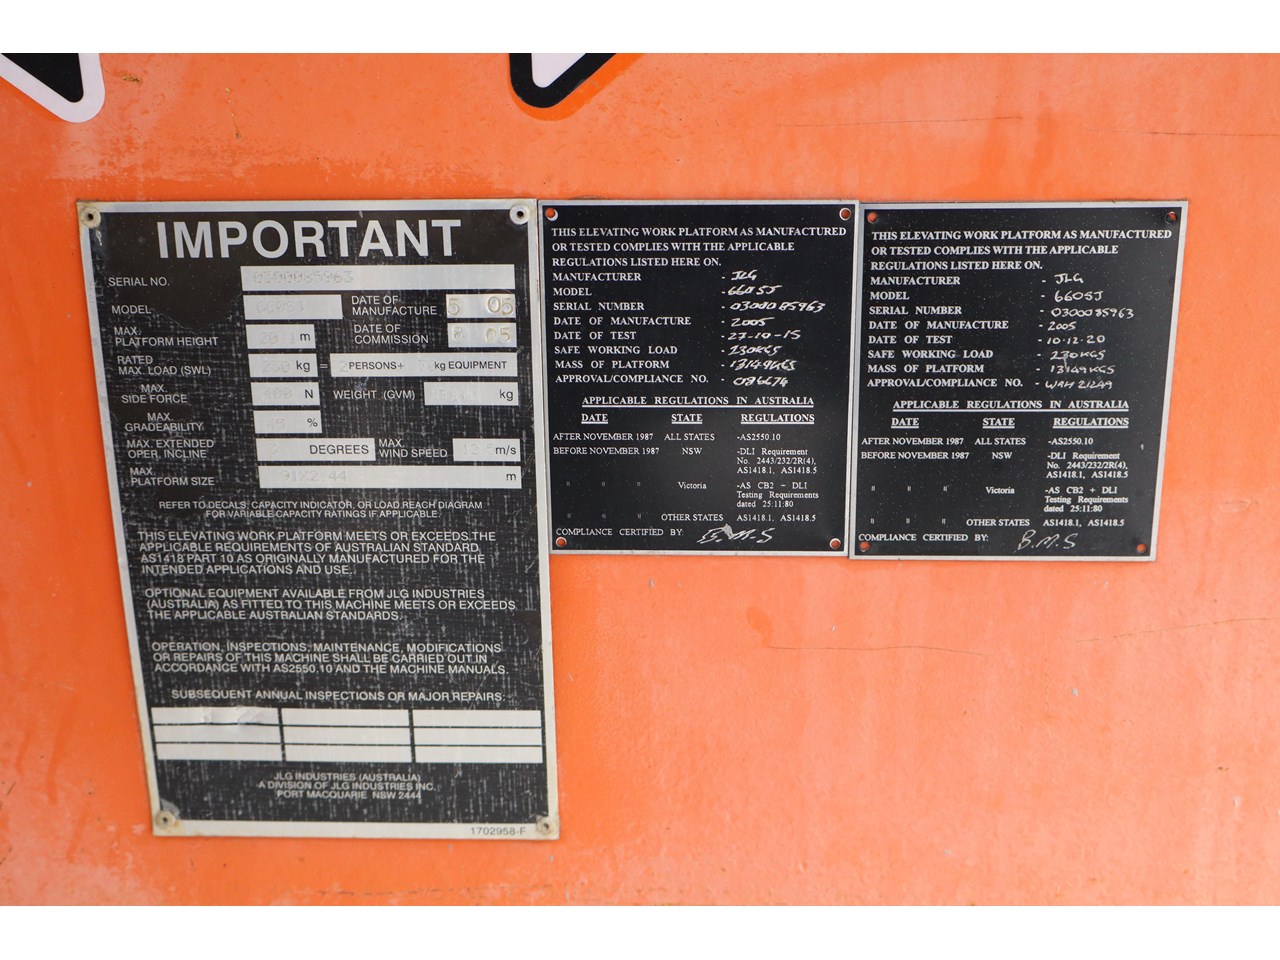 IMPORTANT
SERIAL NO. 0300085963
MODEL 660SJ DATE OF MANUFACTURE 5 05
MAX. PLATFORM HEIGHT m DATE OF COMMISSION 8 05
RATED MAX. LOAD (SWL) 230 kg = 2 PERSONS+ kg EQUIPMENT
MAX. SIDE FORCE N WEIGHT (GVM) kg
MAX. GRADEABILITY 45 %
MAX. EXTENDED OPER. INCLINE DEGREES MAX. WIND SPEED 12.5 m/s
MAX. PLATFORM SIZE .91X2.44 m
REFER TO DECALS, CAPACITY INDICATOR, OR LOAD REACH DIAGRAM
FOR VARIABLE CAPACITY RATINGS IF APPLICABLE
THIS ELEVATING WORK PLATFORM MEETS OR EXCEEDS THE
APPLICABLE REQUIREMENTS OF AUSTRALIAN STANDARD
AS1418 PART 10 AS ORIGINALLY MANUFACTURED FOR THE
INTENDED APPLICATIONS AND USE.
OPTIONAL EQUIPMENT AVAILABLE FROM JLG INDUSTRIES
(AUSTRALIA) AS FITTED TO THIS MACHINE MEETS OR EXCEEDS
THE APPLICABLE AUSTRALIAN STANDARDS.
OPERATION, INSPECTIONS, MAINTENANCE, MODIFICATIONS
OR REPAIRS OF THIS MACHINE SHALL BE CARRIED OUT IN
ACCORDANCE WITH AS2550.10 AND THE MACHINE MANUALS.
SUBSEQUENT ANNUAL INSPECTIONS OR MAJOR REPAIRS:
JLG INDUSTRIES (AUSTRALIA)
A DIVISION OF JLG INDUSTRIES INC.
PORT MACQUARIE NSW 2444
1702958-F
THIS ELEVATING WORK PLATFORM AS MANUFACTURED
OR TESTED COMPLIES WITH THE APPLICABLE
REGULATIONS LISTED HERE ON.
MANUFACTURER - JLG
MODEL - 660SJ
SERIAL NUMBER - 0300085963
DATE OF MANUFACTURE - 2005
DATE OF TEST - 27-10-15
SAFE WORKING LOAD - 230KGS
MASS OF PLATFORM - 13149KGS
APPROVAL/COMPLIANCE NO. - 086674
APPLICABLE REGULATIONS IN AUSTRALIA
DATE STATE REGULATIONS
AFTER NOVEMBER 1987 ALL STATES -AS2550.10
BEFORE NOVEMBER 1987 NSW -DLI Requirement
No. 2443/232/2R(4),
AS1418.1, AS1418.5
" " " Victoria -AS CB2 + DLI
Testing Requirements
dated 25:11:80
" " " OTHER STATES AS1418.1, AS1418.5
COMPLIANCE CERTIFIED BY: B.M.S
THIS ELEVATING WORK PLATFORM AS MANUFACTURED
OR TESTED COMPLIES WITH THE APPLICABLE
REGULATIONS LISTED HERE ON.
MANUFACTURER - JLG
MODEL - 660SJ
SERIAL NUMBER - 0300085963
DATE OF MANUFACTURE - 2005
DATE OF TEST - 10-12-20
SAFE WORKING LOAD - 230KGS
MASS OF PLATFORM - 13149KGS
APPROVAL/COMPLIANCE NO. - WAH 21299
APPLICABLE REGULATIONS IN AUSTRALIA
DATE STATE REGULATIONS
AFTER NOVEMBER 1987 ALL STATES -AS2550.10
BEFORE NOVEMBER 1987 NSW -DLI Requirement
No. 2443/232/2R(4),
AS1418.1, AS1418.5
" " " Victoria -AS CB2 + DLI
Testing Requirements
dated 25:11:80
" " " OTHER STATES AS1418.1, AS1418.5
COMPLIANCE CERTIFIED BY: B.M.S